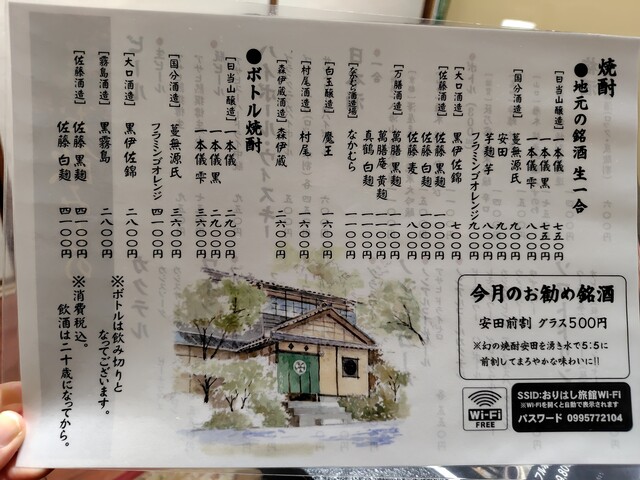 焼酎
●地元の銘酒 生一合
【日当山醸造】
一本儀 七五〇円
一本儀 黒 七五〇円
一本儀 雫 八〇〇円
【国分酒造】
蔓無源氏 九〇〇円
安田 九〇〇円
芋麹 芋 八〇〇円
フラミンゴオレンジ 九〇〇円
【大口酒造】
黒伊佐錦 七〇〇円
【佐藤酒造】
佐藤 黒麹
佐藤 白麹
佐藤 麦 八〇〇円
【万膳酒造】
萬膳 黒麹
萬膳庵 黄麹
真鶴 白麹
【なかむら酒造場】
なかむら
【白玉醸造】
魔王 一六〇〇円
【村尾酒造】
村尾 一六〇〇円
【森伊蔵酒造】
森伊蔵 二六〇〇円
●ボトル焼酎
【日当山醸造】
一本儀 二九〇〇円
一本儀 黒 二九〇〇円
一本儀 雫 三六〇〇円
【国分酒造】
蔓無源氏 三六〇〇円
フラミンゴオレンジ 四一〇〇円
【大口酒造】
黒伊佐錦 二八〇〇円
【霧島酒造】
黒霧島 二八〇〇円
【佐藤酒造】
佐藤 黒麹 四一〇〇円
佐藤 白麹 四一〇〇円
※ボトルは飲み切りと
なってございます。
※消費税込。
飲酒は二十歳になってから。
今月のお勧め銘酒
安田前割 グラス500円
※幻の焼酎安田を湧き水で5:5に
前割してまろやかな味わいに!!
Wi-Fi
FREE
SSID:おりはし旅館Wi-Fi
※Wi-Fiを開くと自動で表示されます
パスワード 0995772104